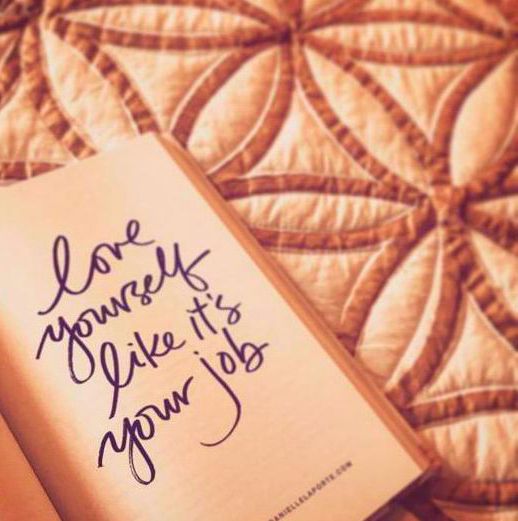 love
yourself
like it's
your job
DANIELLELAPORTE.COM